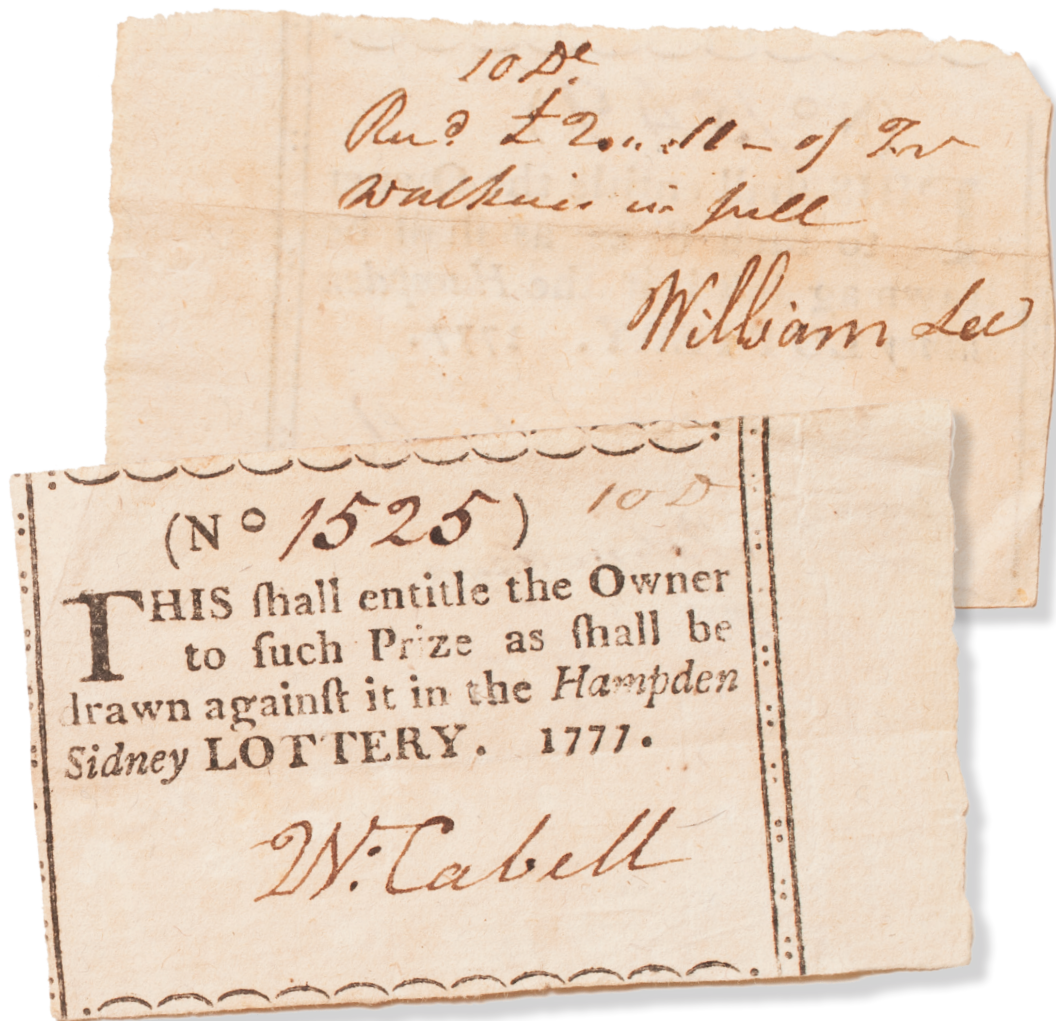 10 De.
Recd £2..11 - of
in full
William Lee
(No 1525) 10 D
THIS ſhall entitle the Owner
to ſuch Prize as ſhall be
drawn againſt it in the Hampden
Sidney LOTTERY. 1777.
W. Cabell